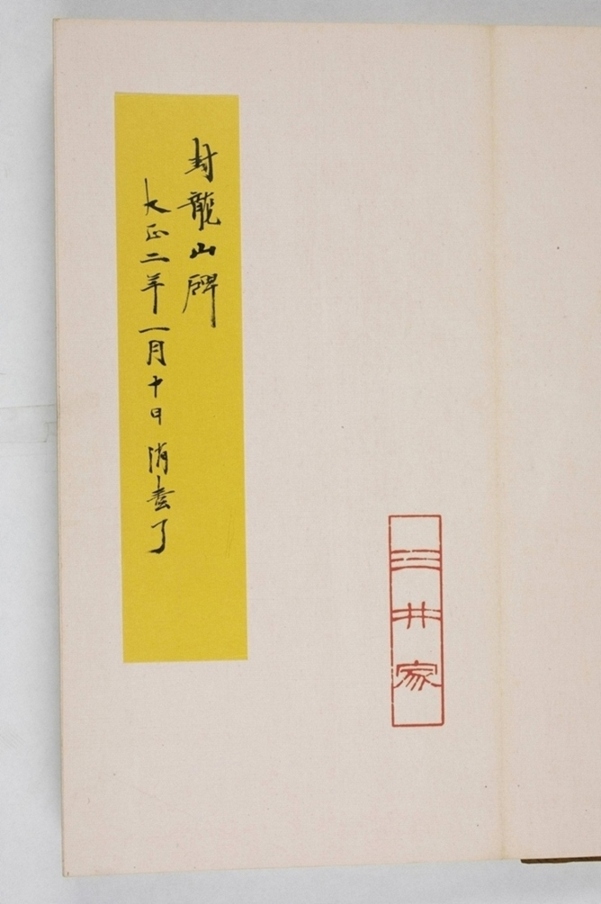 三井家
封龍山碑
大正二年一月十日消毒了